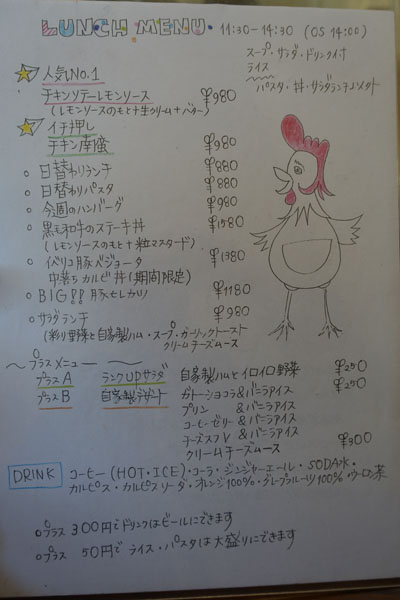 LUNCH MENU 11:30-14:30 (OS 14:00)
スープ・サラダ・ドリンク付
ライス
パスタ・丼・サラダランチ
人気No.1
チキンソテーレモンソース ¥980
(レモンソースのもと+生クリーム+バター)
イチ押し
チキン南蛮 ¥980
○ 日替わりランチ ¥880
○ 日替わりパスタ ¥880
○ 今週のハンバーグ ¥980
○ 黒毛和牛のステーキ丼 ¥1580
(レモンソースのもと+粒マスタード)
○ イベリコ豚ベジョータ ¥1380
中落ちカルビ丼(期間限定)
○ BIG!! 豚ヒレカツ ¥1180
○ サラダランチ ¥980
(彩り野菜と自家製ハム・スープ・ガーリックトースト
クリームチーズムース
〜プラスメニュー〜
プラスA ランクUPサラダ 自家製ハムとイロイロ野菜 ¥250
プラスB 自家製デザート ガトーショコラ&バニラアイス ¥250
プリン &バニラアイス
コーヒーゼリー&バニラアイス
チーズスフレ &バニラアイス
クリームチーズムース ¥300
DRINK コーヒー(HOT・ICE)・コーラ・ジンジャーエール・SODA水・
カルピス・カルピスソーダ・オレンジ100%・グレープフルーツ100%・ウーロン茶
○プラス 300円でドリンクはビールにできます
○プラス 50円でライス・パスタは大盛りにできます